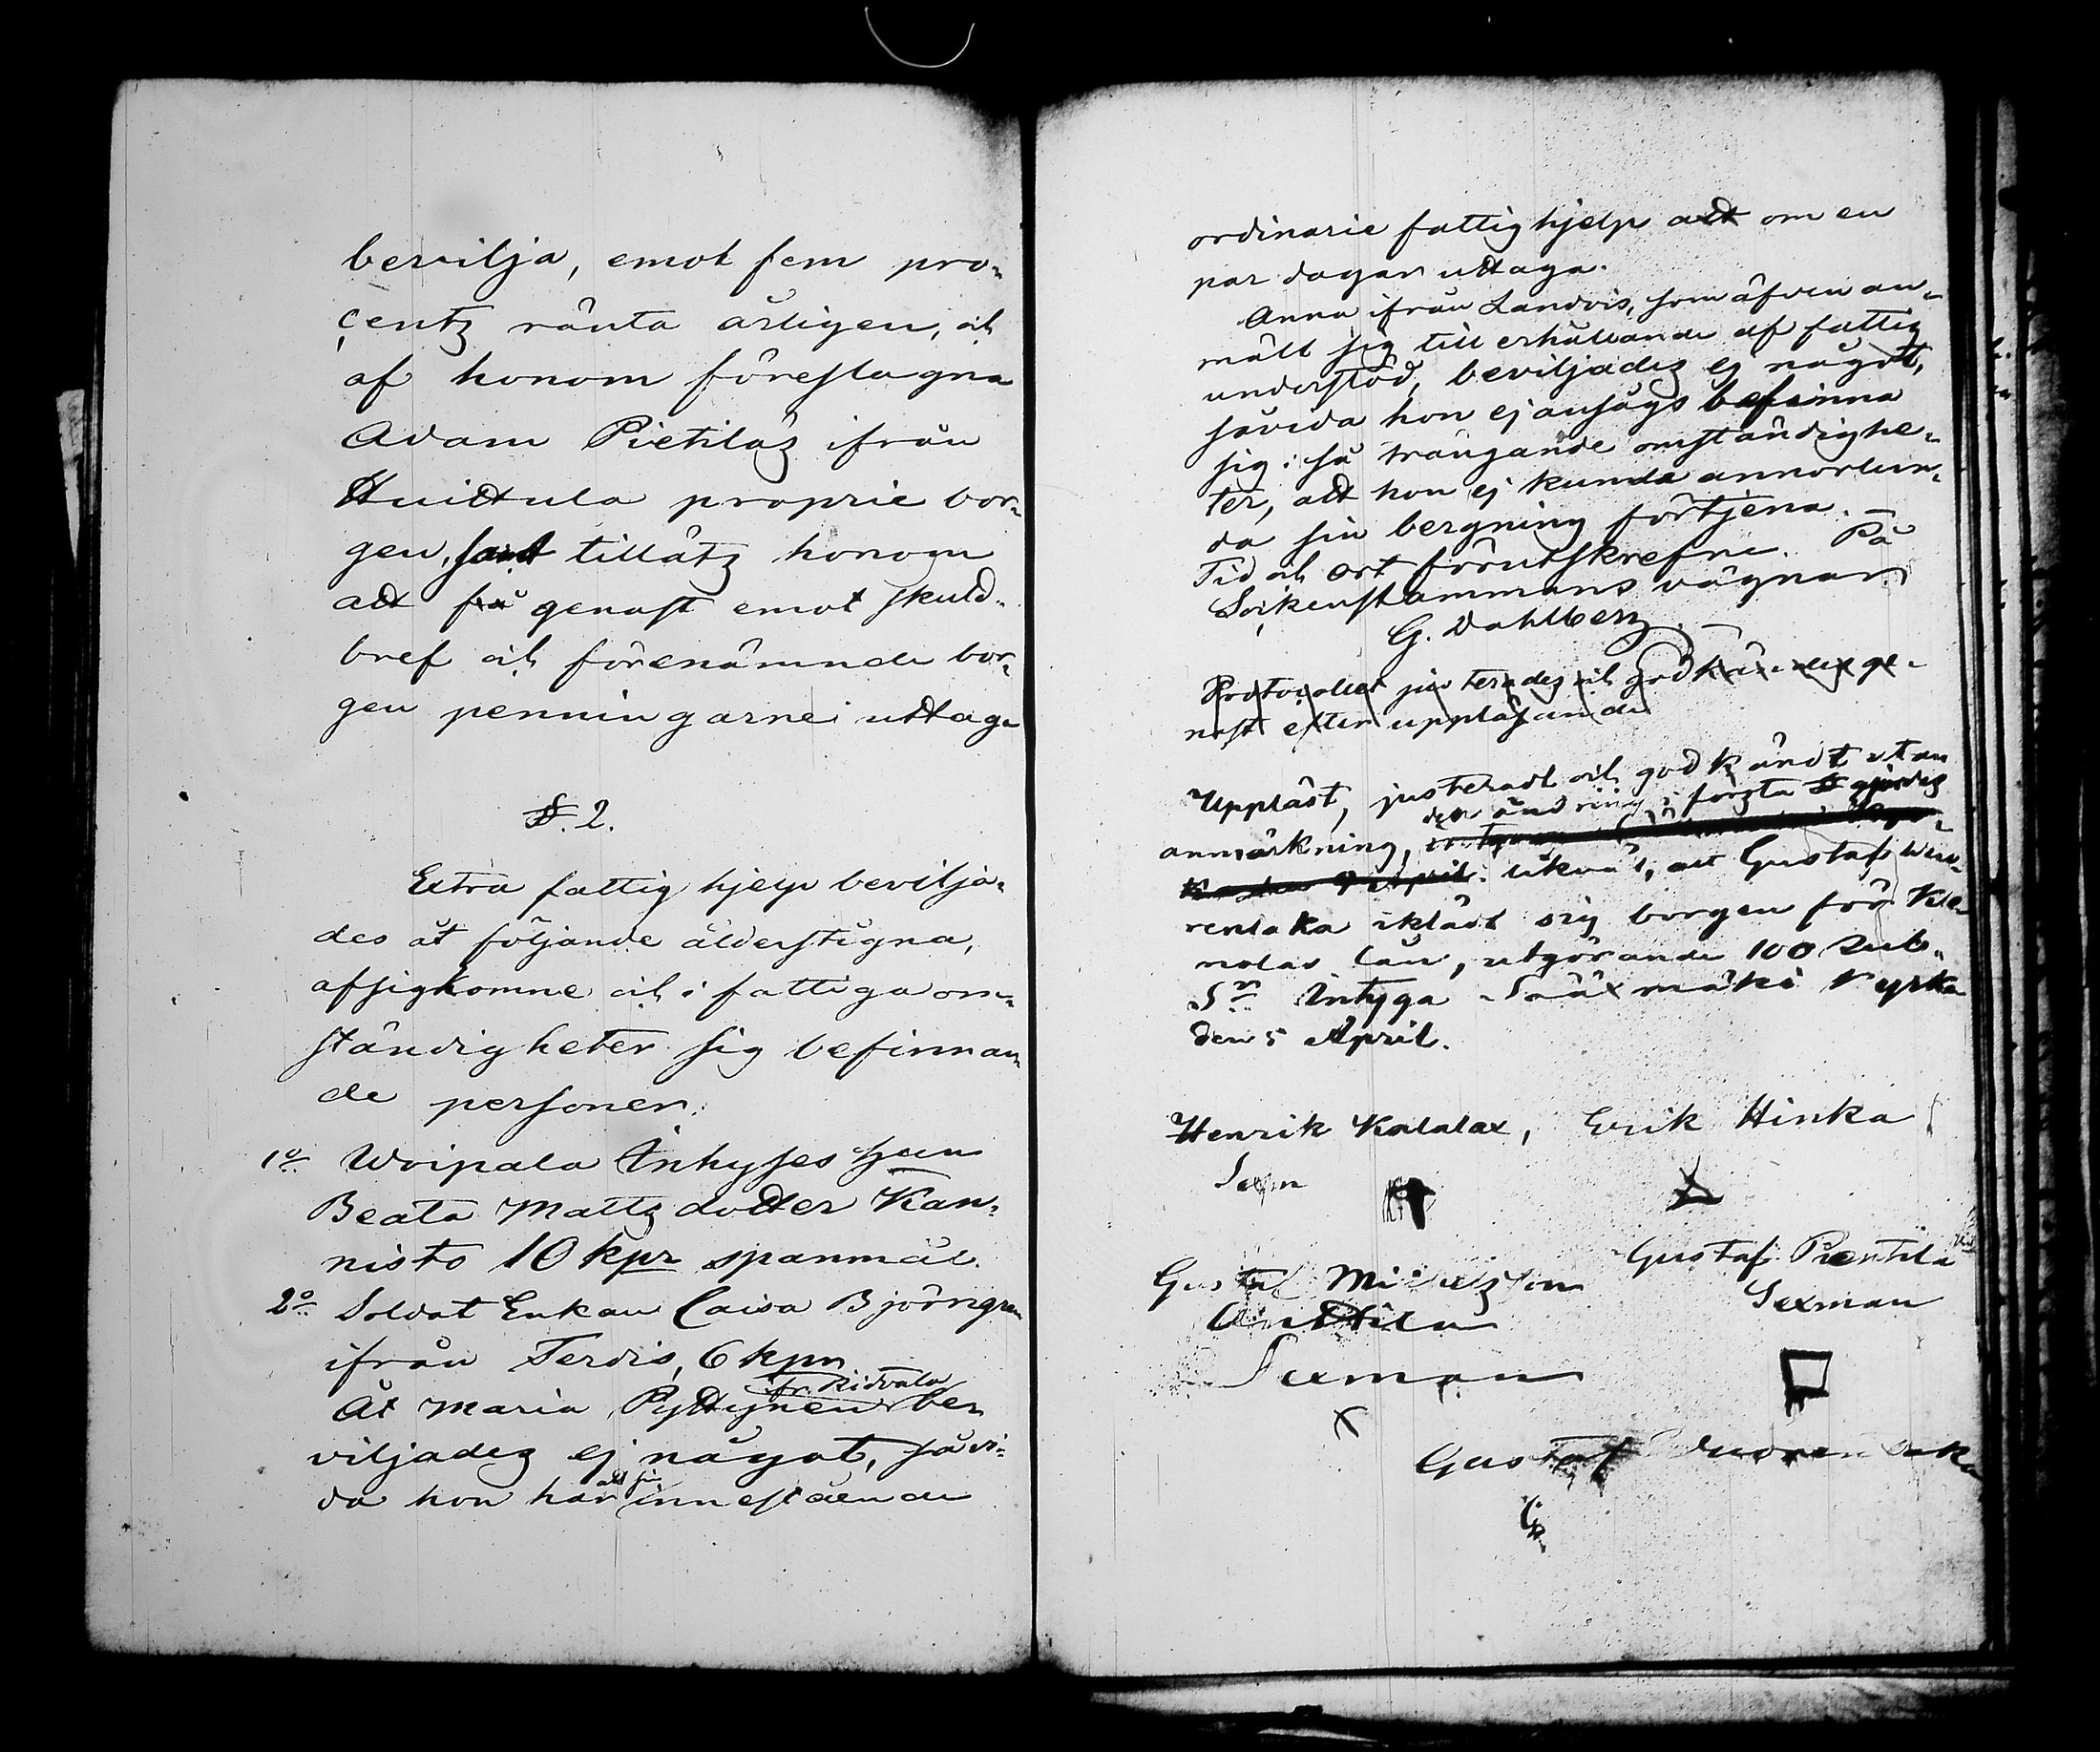 bevilja, emot fem pro-
centz ränta årligen, och
af honom föreslagna
Adam Pietiläz ifrån
Huittula proprie bor-
gen, samt tillätz honom
att få genast emot skuld-
bref och förenämnde bor-
gen penningarne uttaga
§. 2.
Extra fattighjelp bevilja-
des åt följande ålderstigna,
afsigkomne och i fattiga om-
ständigheter sig befinnan-
de personer:
1o Woipala Inhyses hjon
Beata Mattz dotter Kan-
nisto 10 kpr spanmål.
2o Soldat Enkan Caisa Björngren
ifrån Terdis, 6 kpr
fr. Ridvala
Åt Maria Pyttynen be-
viljadez ej något, såvi-
da hon har att sin innestående
ordinarie fattighjelp att om en
par dagar uttaga.
Anna ifrån Landvis, som äfven an-
mält sig till erhållande af fattig
understöd, beviljadez ej något,
såvida hon ej ansågs befinna
sig i så trängande omständighe-
ter, att hon ej kunde annorlun-
da sin bergning förtjena. —
Tid och ort förutskrefne. På
Sockenstämmans vägnar
G. Dahlberg. —
Protocollet justerades och godkändes ge-
nast efter uppläsande
Uppläst, justeradt och godkändt utan
den ändring i första § gjordes
anmärkning,
likväl, att Gustaf Wuo-
rentaka iklädt sig borgen för
nolas lån, utgörande 100 Rub.
Sr Intyga Sääxmäki Kyrka
den 5 April.
Henrik Kalalax, Erik Hinka
Sexm
Gustaf Michelsson
Anttila
Sexman
Gustaf Pentilä
Sexman
Gustaf Vuorentaka